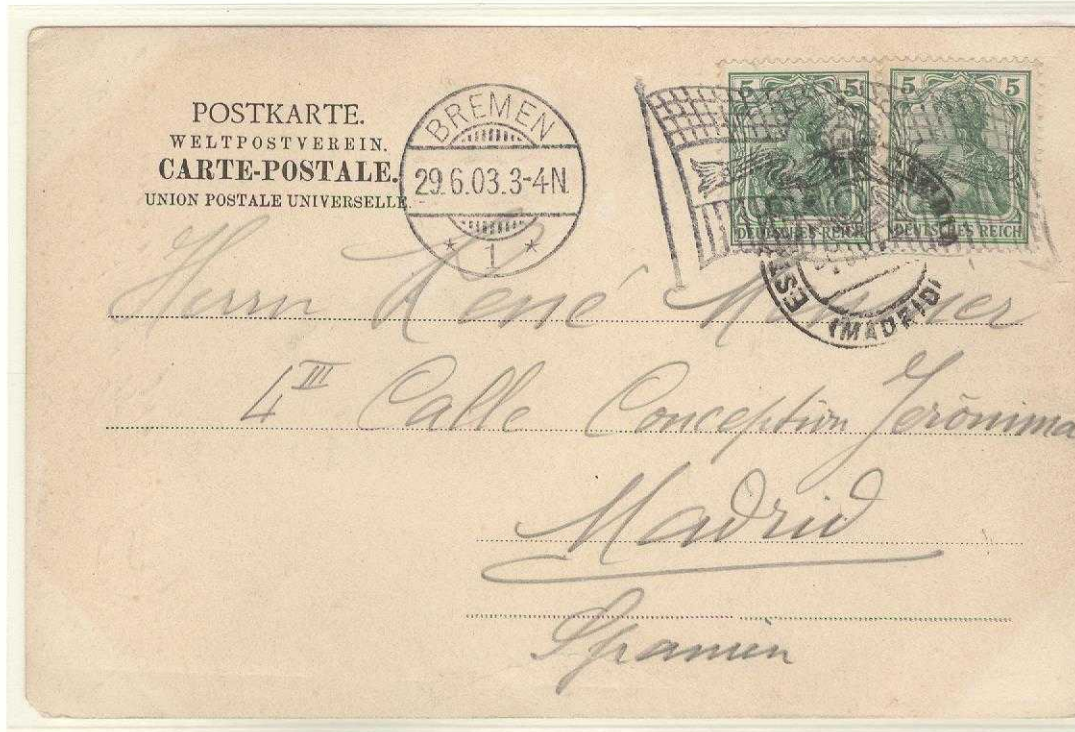 POSTKARTE.
WELTPOSTVEREIN.
CARTE-POSTALE.
UNION POSTALE UNIVERSELLE.
BREMEN
29.6.03.3-4N.
* 1 *
5 5 5 5
DEUTSCHES REICH DEUTSCHES REICH
(MADRID)
Herrn René
4 III Calle Conception Jerónima
Madrid
Spanien